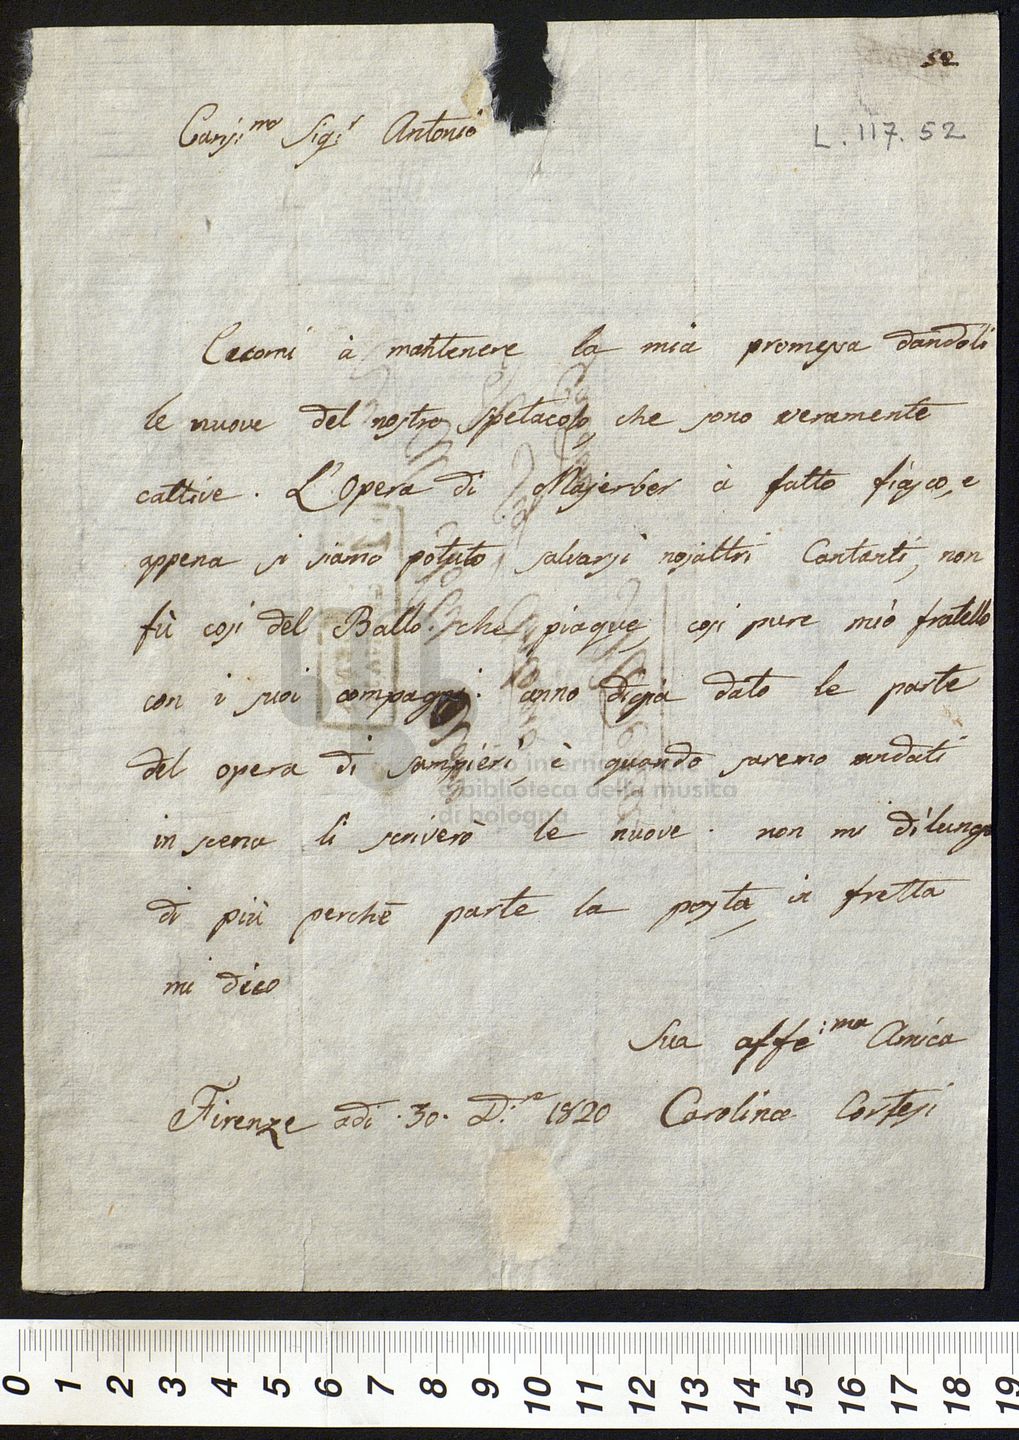 52
L. 117. 52
Carisi.mo Sig.r Antonio
Eccomi à mantenere la mia promessa dandoli
le nuove del nostro spetacolo, che sono veramente
cattive. L'Opera di Majerber à fatto fiasco, e
appena si siamo potuto salvarsi nojaltri Cantanti, non
fù cosi del Ballo che piaque, cosi pure mio fratello
con i suoi compagni. anno digià dato le parte
del opera di Sampieri, è quando saremo andati
in scena li scriverò le nuove. non mi dilungo
di più perchè parte la posta, in fretta
mi dico
Sua affe:ma Amica
Firenze adi .30. D.re 1820 Carolina Cortesi
museo internazionale
e biblioteca della musica
di bologna
0 1 2 3 4 5 6 7 8 9 10 11 12 13 14 15 16 17 18 19